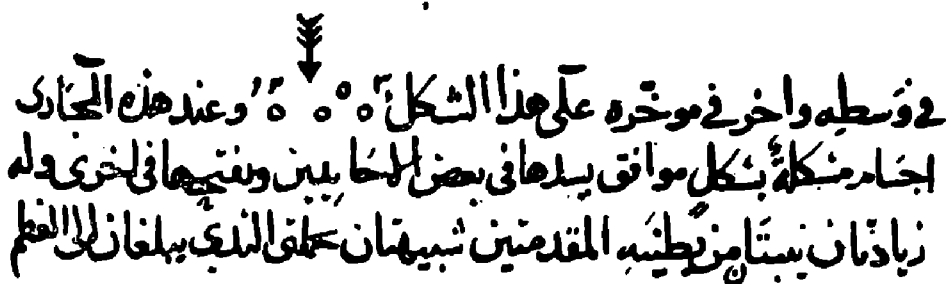 في وسطه واخر في موخره على هذا الشكل ه ه ه ه وعند هذه المجارى
اجسام مشكلة بشكل موافق يسدها فى بعض الاحايين ويفتحها فى اخرى وله
زيادتان نبتتا من بطنيه المقدمتين شبيهتان بحلمتى الثدي يبلغان الى العظم